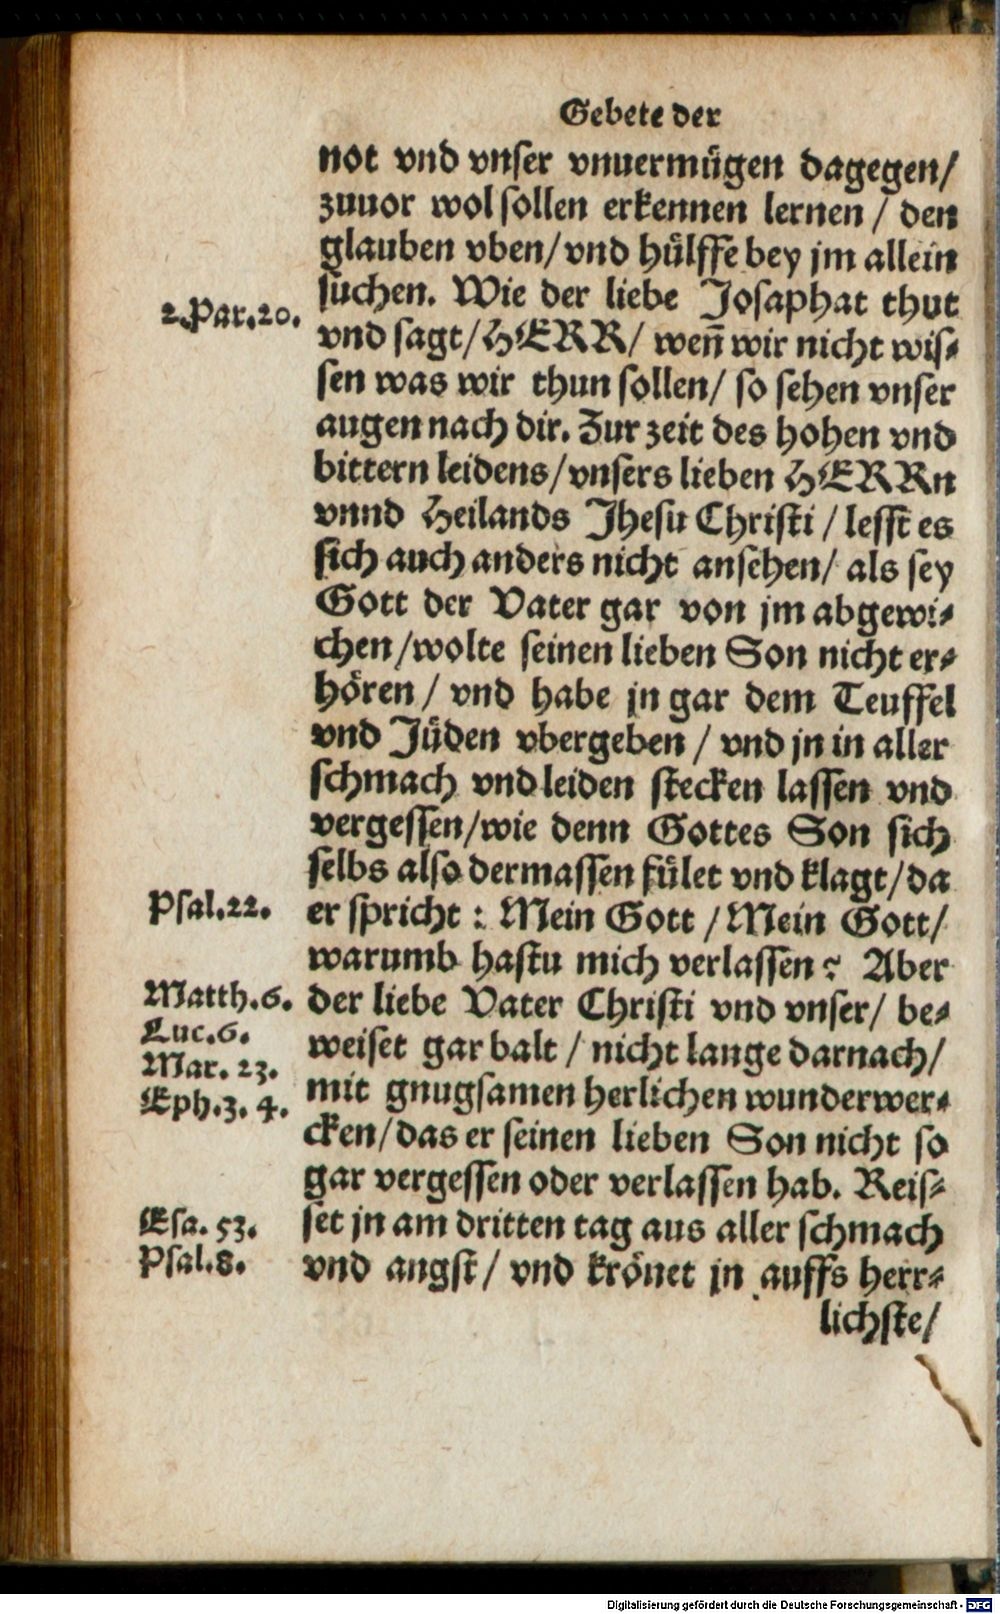 Gebete der
not vnd vnser vnuermügen dagegen/
zuuor wol sollen erkennen lernen / den
glauben vben/ vnd hülffe bey jm allein
suchen. Wie der liebe Josaphat thut
2. Par. 20.
vnd sagt/ HERR/ weñ wir nicht wis-
sen was wir thun sollen/ so sehen vnser
augen nach dir. Zur zeit des hohen vnd
bittern leidens/ vnsers lieben HERRn
vnnd Heilands Jhesu Christi / lesst es
sich auch anders nicht ansehen/ als sey
Gott der Vater gar von jm abgewi-
chen/ wolte seinen lieben Son nicht er-
hören / vnd habe jn gar dem Teuffel
vnd Jüden vbergeben / vnd jn in aller
schmach vnd leiden stecken lassen vnd
vergessen/ wie denn Gottes Son sich
selbs also dermassen fület vnd klagt/ da
Psal. 22.
er spricht: Mein Gott / Mein Gott/
warumb hastu mich verlassen? Aber
Matth. 6.
der liebe Vater Christi vnd vnser/ be-
Luc. 6.
weiset gar balt / nicht lange darnach/
Mar. 23.
mit gnugsamen herlichen wunderwer-
Eph. 3. 4.
cken/ das er seinen lieben Son nicht so
gar vergessen oder verlassen hab. Reis-
Esa. 53.
set jn am dritten tag aus aller schmach
Psal. 8.
vnd angst/ vnd krönet jn auffs herr-
lichste/
Digitalisierung gefördert durch die Deutsche Forschungsgemeinschaft - DFG